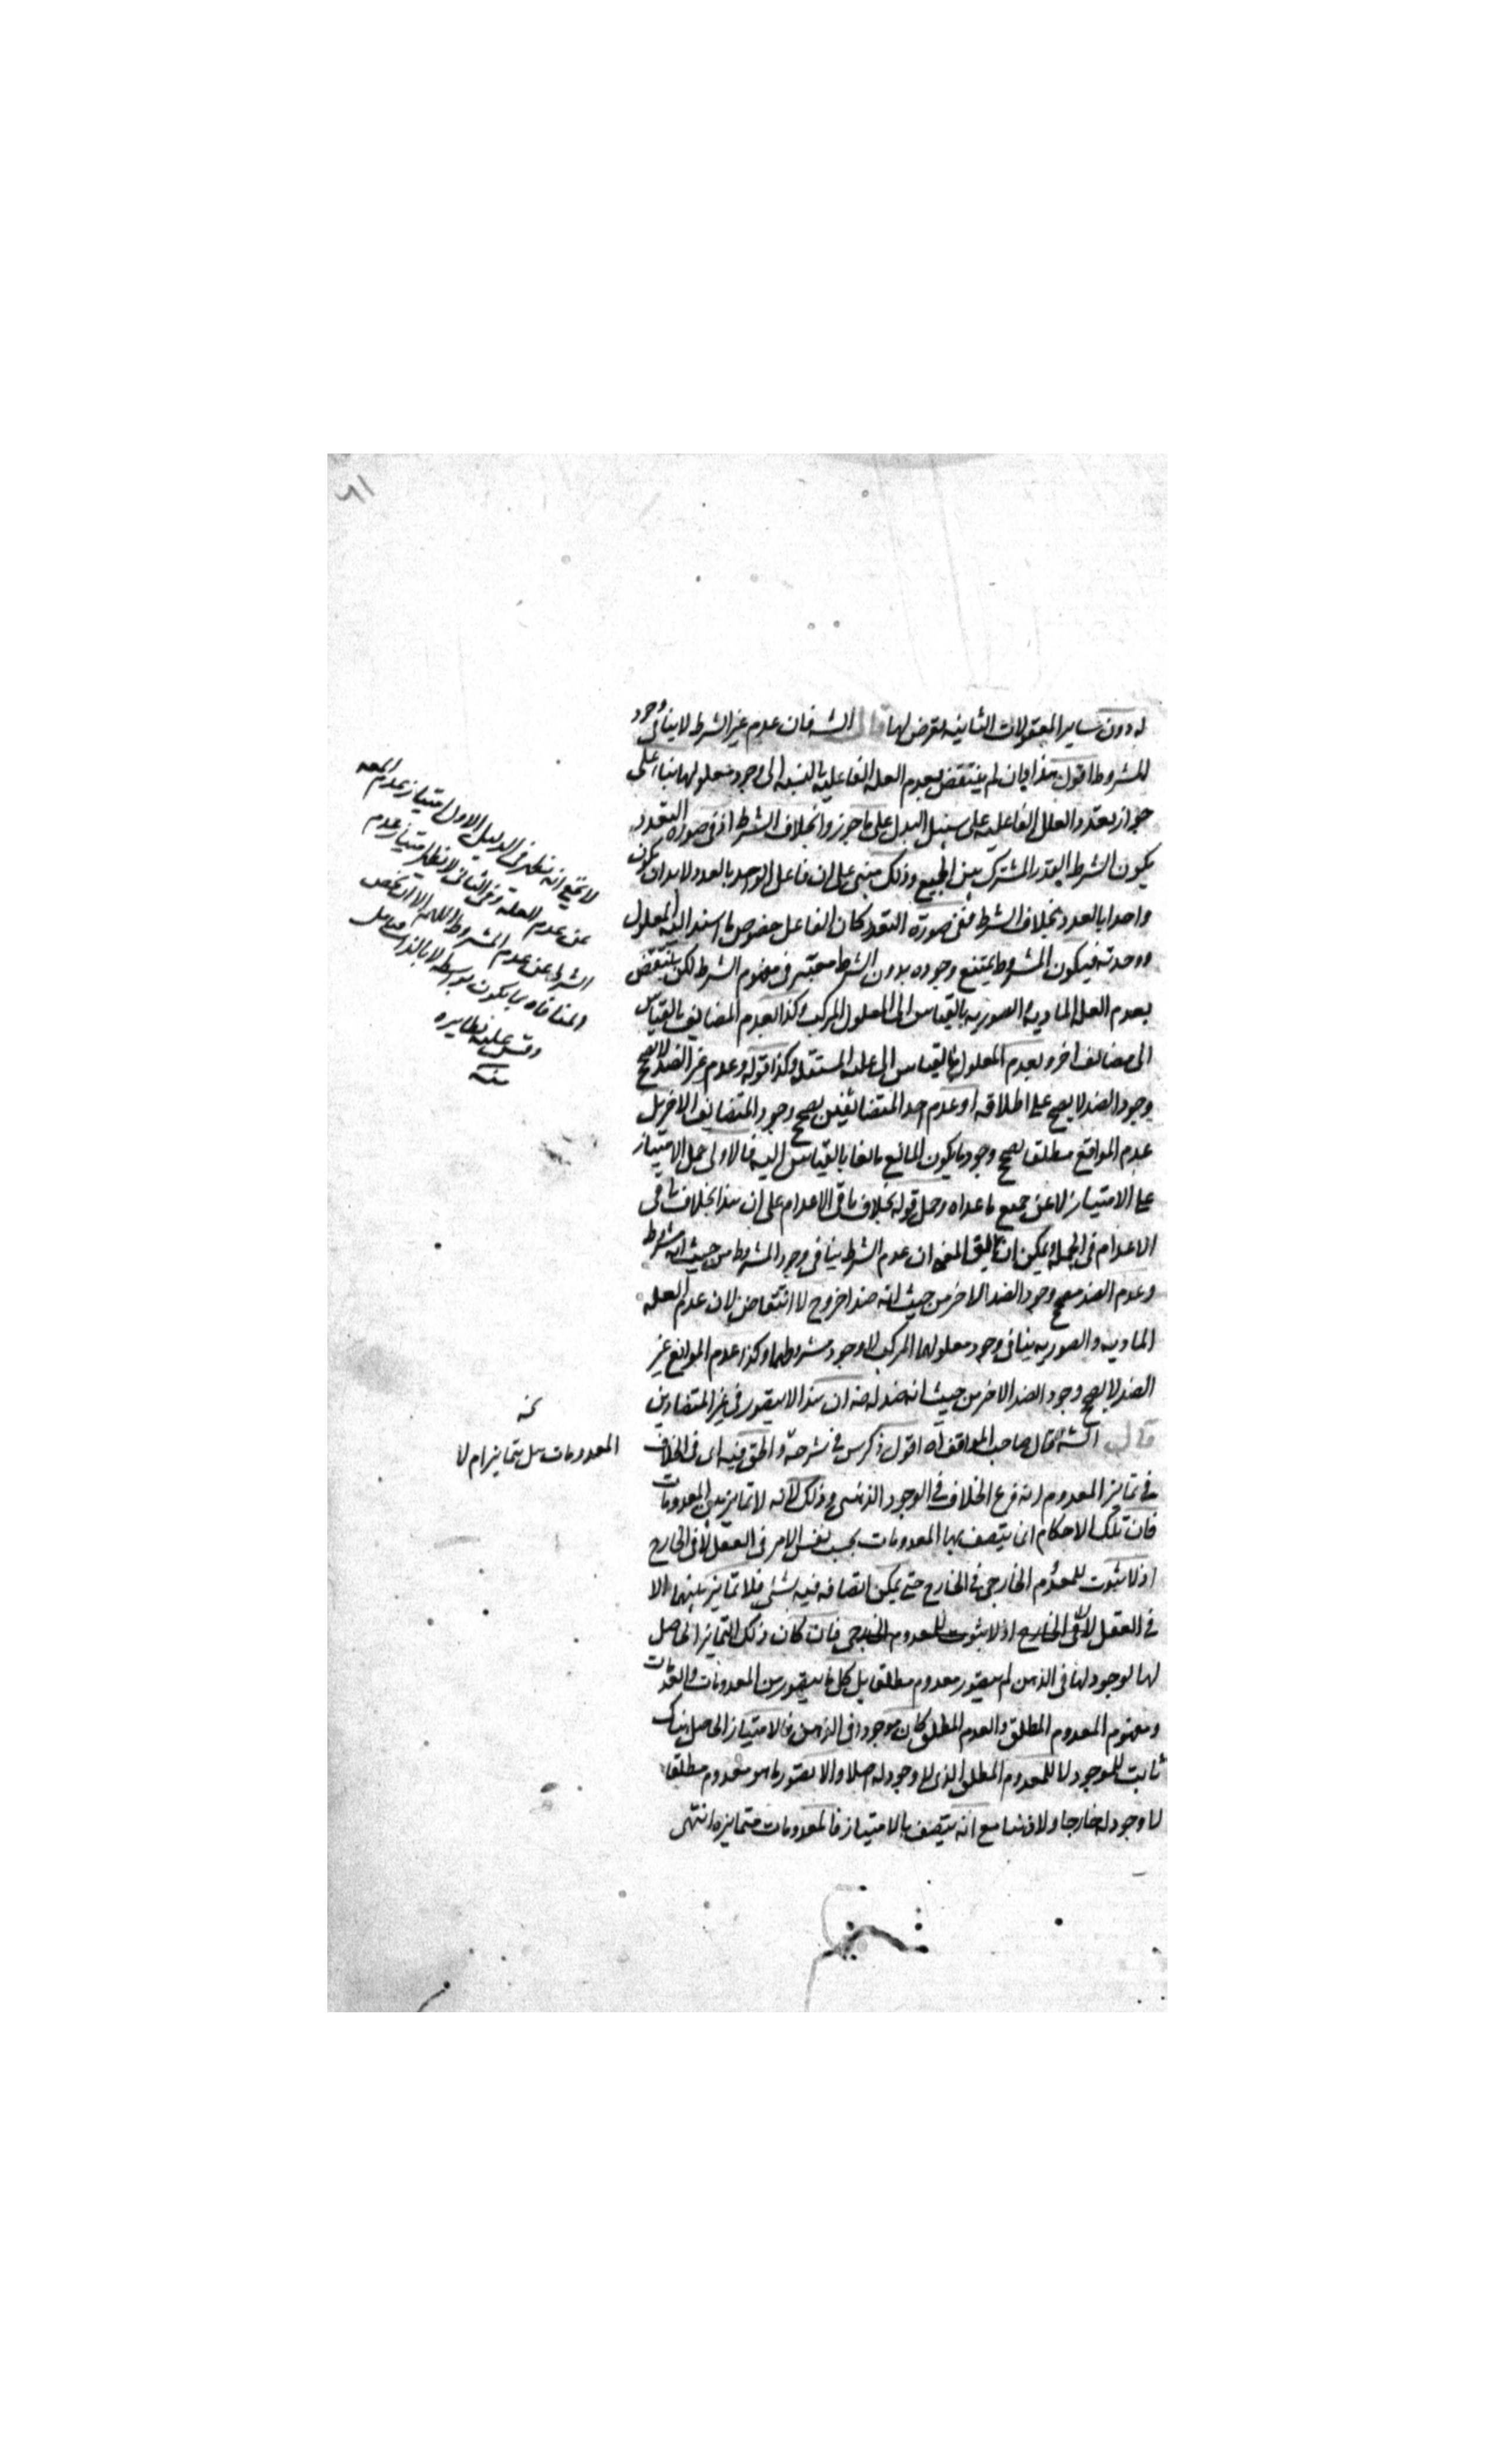 له دون ساير المعقولات الثانيه لغرض لها قال الشه فان عدم غير الشرط لا ينافى وجود
المشروط اقول هذا بيان لم ينتقض بعدم العله الفاعليه بالنسبه الى وجود معلولها بناء على
جواز تعدد العلل الفاعليه على سبيل البدل على ما جوزوا بخلاف الشرط اذ فى صوره التعدد
يكون الشرط القدر المشترك بين الجميع وذلك مبنى على ان فاعل الواحد بالعدد لا بد ان يكون
واحدا بالعدد بخلاف الشرط ففى صورة التعدد كان الفاعل خصوص ما استند اليه المعلول
ووحدته فيكون المشروط يمتنع وجوده بدون الشرط معتبر فى مفهوم الشرط لكن ينتقض
بعدم العله الماديه الصوريه بالقياس الى المعلول المركب وكذا بعدم المضايف بالقياس
الى مضايف اخر وبعدم المعلول بالقياس الى علته المستقله وكذا قوله وعدم غير الضد لا يصحح
وجود الضد لا يصح على اطلاقه او عدم احد المتضائفين يصحح وجود المتضايف الاخر بل
عدم الموانع مطلقا يصحح وجود ما يكون المانع مانعا بالقياس اليه فالاولى حمل الامتياز
على الامتياز لا عن جميع ما عداه وحمل قوله بخلاف باقى الاعدام على ان هذا بخلاف باقى
الاعدام فى الجمله ويمكن ان يقال المعنى ان عدم الشرط ينافى وجود المشروط من حيث انه مشروط
وعدم الضد مصحح وجود الضد الاخر من حيث انه ضد اخر وح لا انتقاض لان عدم العله
الماديه والصوريه ينافى وجود معلولهما المركب لا وجود مشروطهما وكذا عدم الموانع غير
الضد لا يصحح وجود الضد الاخر من حيث انه ضد له فان هذا لا يتصور فى غير المتضادين
قال الشه قال صاحب المواقف اه اقول ذكر س فى شرحه والحق فيه اى فى الخلاف
فى تمايز المعدوم انه فرع الخلاف فى الوجود الذهنى وذلك لانه لا تمايز بين المعدومات
فان تلك الاحكام انما يتصف بها المعدومات بحسب نفس الامر فى العقل لا فى الخارج
اذ لا ثبوت للمعدوم الخارجى فى الخارج حتى يمكن اتصافه فيه بشئ فلا تمايز بينهما الا
فى العقل لا فى الخارج اذ لا ثبوت للمعدوم الخارجى فان كان ذلك التمايز الحاصل
لها لوجود لها فى الذهن لم يتصور معدوم مطلقا بل كل ما يتصور من المعدومات والعدمات
ومفهوم المعدوم المطلق والعدم المطلق كان موجودا فى الذهن فالامتياز الحاصل هناك
ثابت للموجود لا للمعدوم المطلق الذى لا وجود له اصلا والا تصور ما هو معدوم مطلقا
لا وجود له خارجا ولا ذهنا مع انه يتصف بالامتياز فالمعدومات متمايزه انتهى
لا يخفى انه نظر فى الدليل الاول امتياز عدم المعلول
عن عدم العله وفى الثانى لا نظر امتياز عدم
الشرط عن عدم المشروط اللهم الا ان يخص
المنافاه بما يكون بواسطه لا بالذات فتامل
وقس عليه نظايره
منه
نخه
المعدومات هل يتمايز ام لا